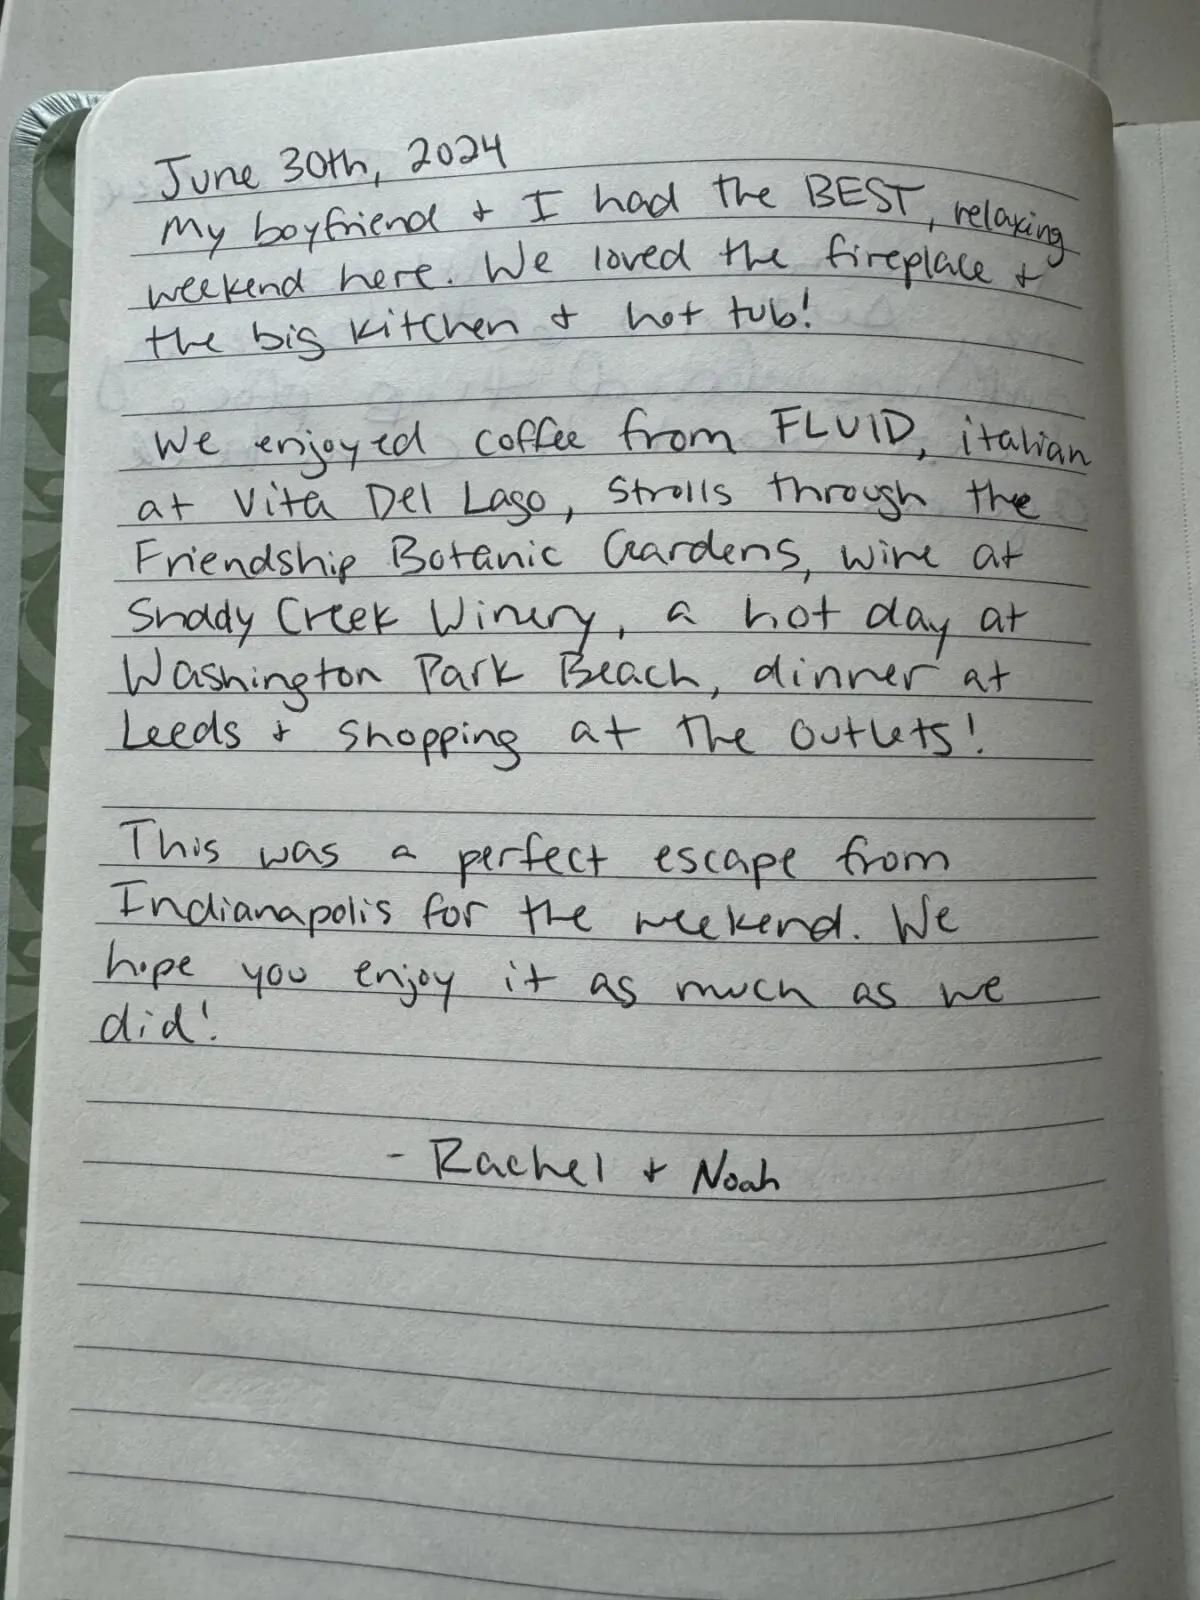 June 30th, 2024
My boyfriend + I had the BEST, relaxing
weekend here. We loved the fireplace +
the big kitchen + hot tub!
We enjoyed coffee from FLUID, italian
at Vita Del Lago, strolls through the
Friendship Botanic Gardens, wine at
Shady Creek Winery, a hot day at
Washington Park Beach, dinner at
Leeds + shopping at the outlets!
This was a perfect escape from
Indianapolis for the weekend. We
hope you enjoy it as much as we
did!
- Rachel + Noah